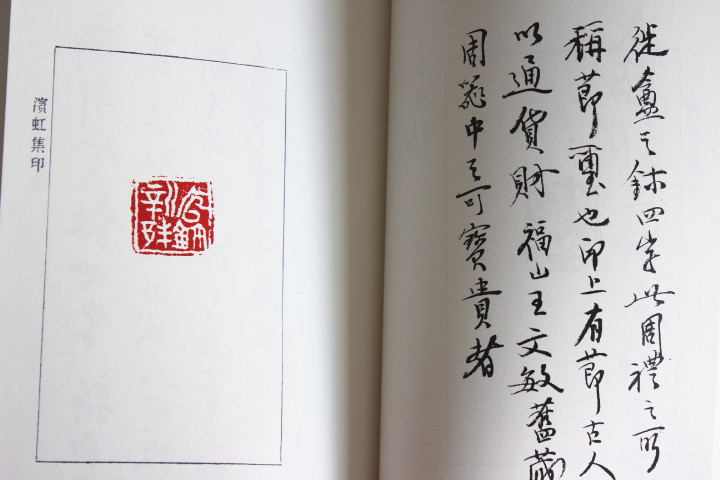 徙盦之鉨四字此周禮之所
稱節璽也印上有節古人
以通貨財福山王文敏舊藏
周中之可寶貴者
濱虹集印